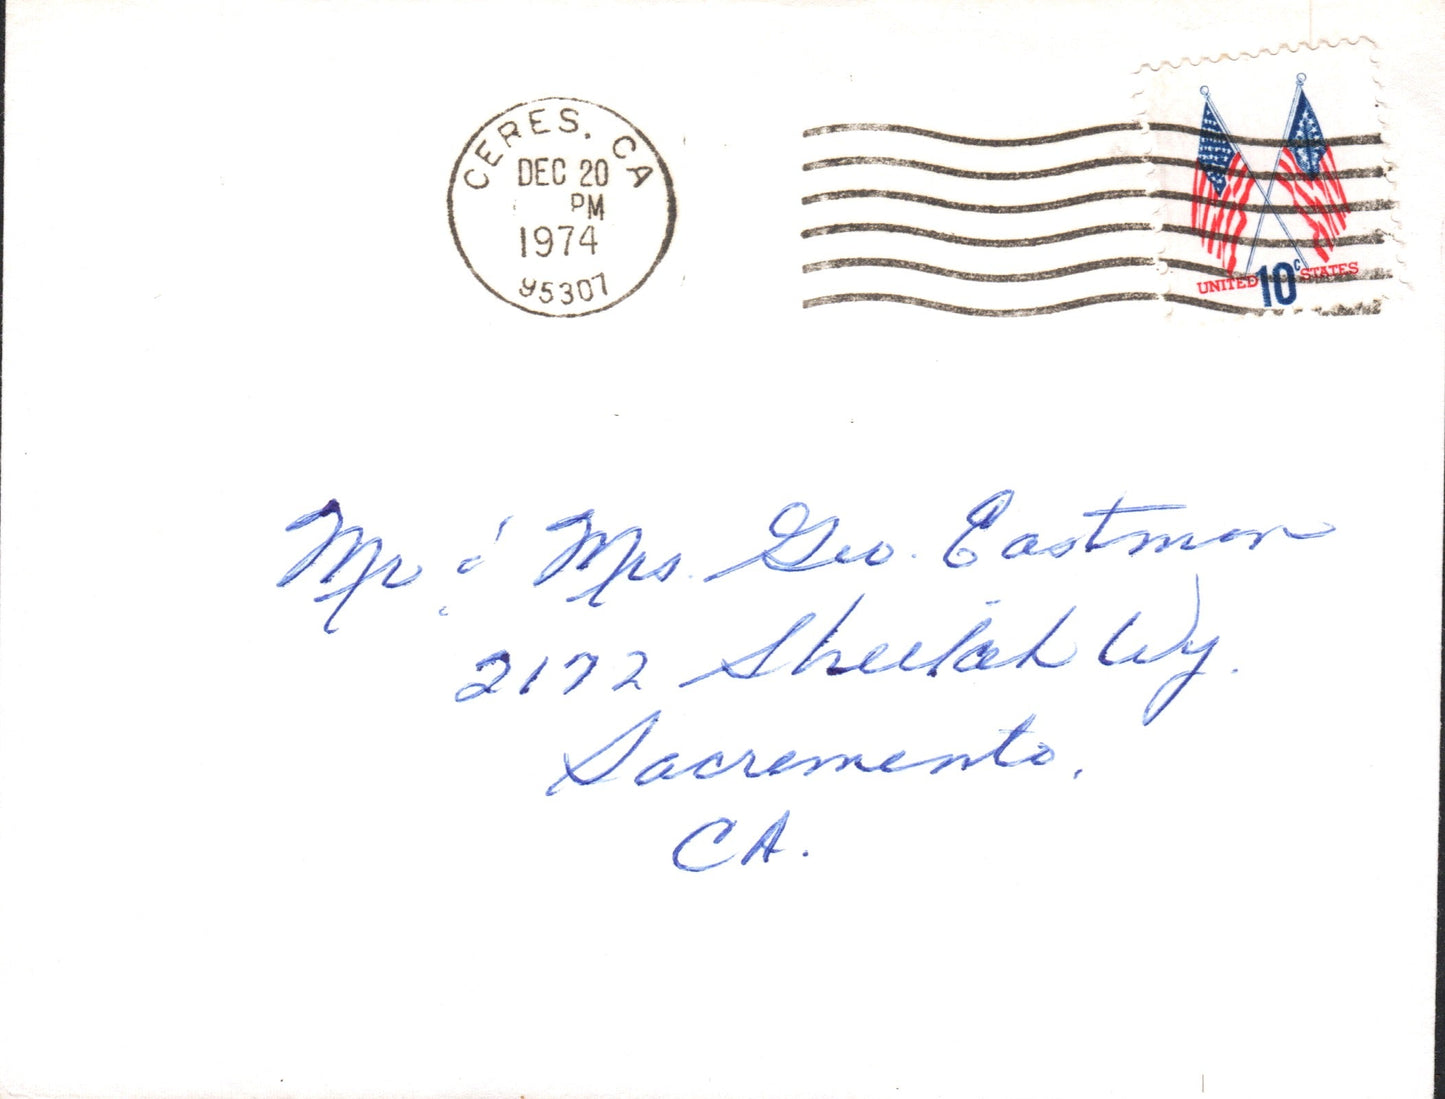 CERES, CA
DEC 20
PM
1974
95307
UNITED 10c STATES
Mr & Mrs. Geo. Eastman
2172 Sheelah Wy.
Sacramento,
CA.